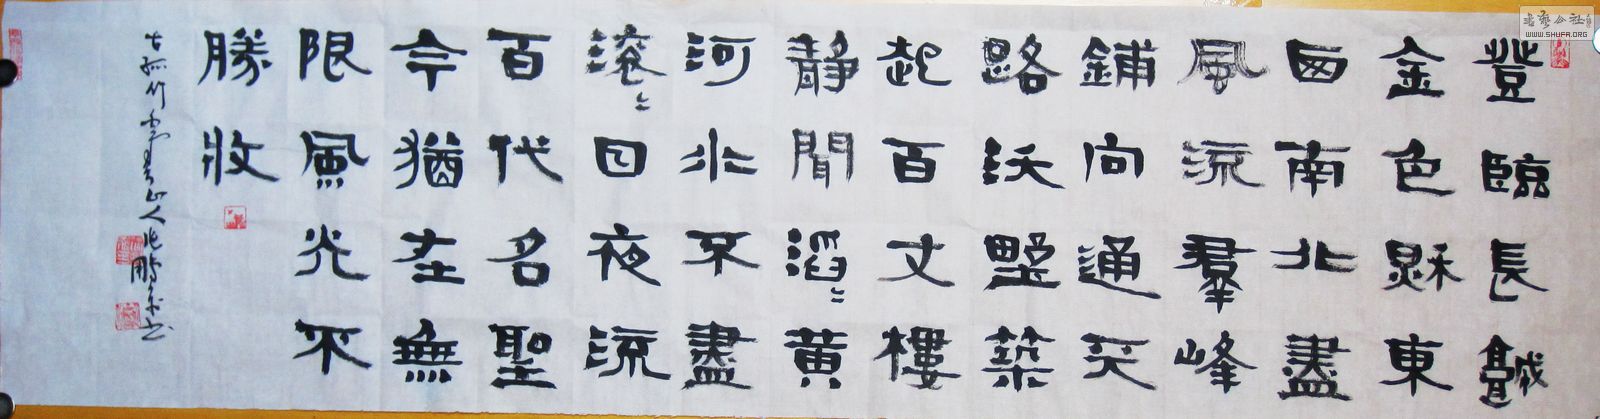 登臨長城
金色秋東
西南北盡
風流羣峰
鋪向通天
路沃野築
起百丈樓
靜聞滔〻黃
河水不盡
滾〻日夜流
百代名聖
今猶在無
限風光不
勝收
古孤竹山人兆鵬書
書藝公社
WWW.SHUFA.ORG